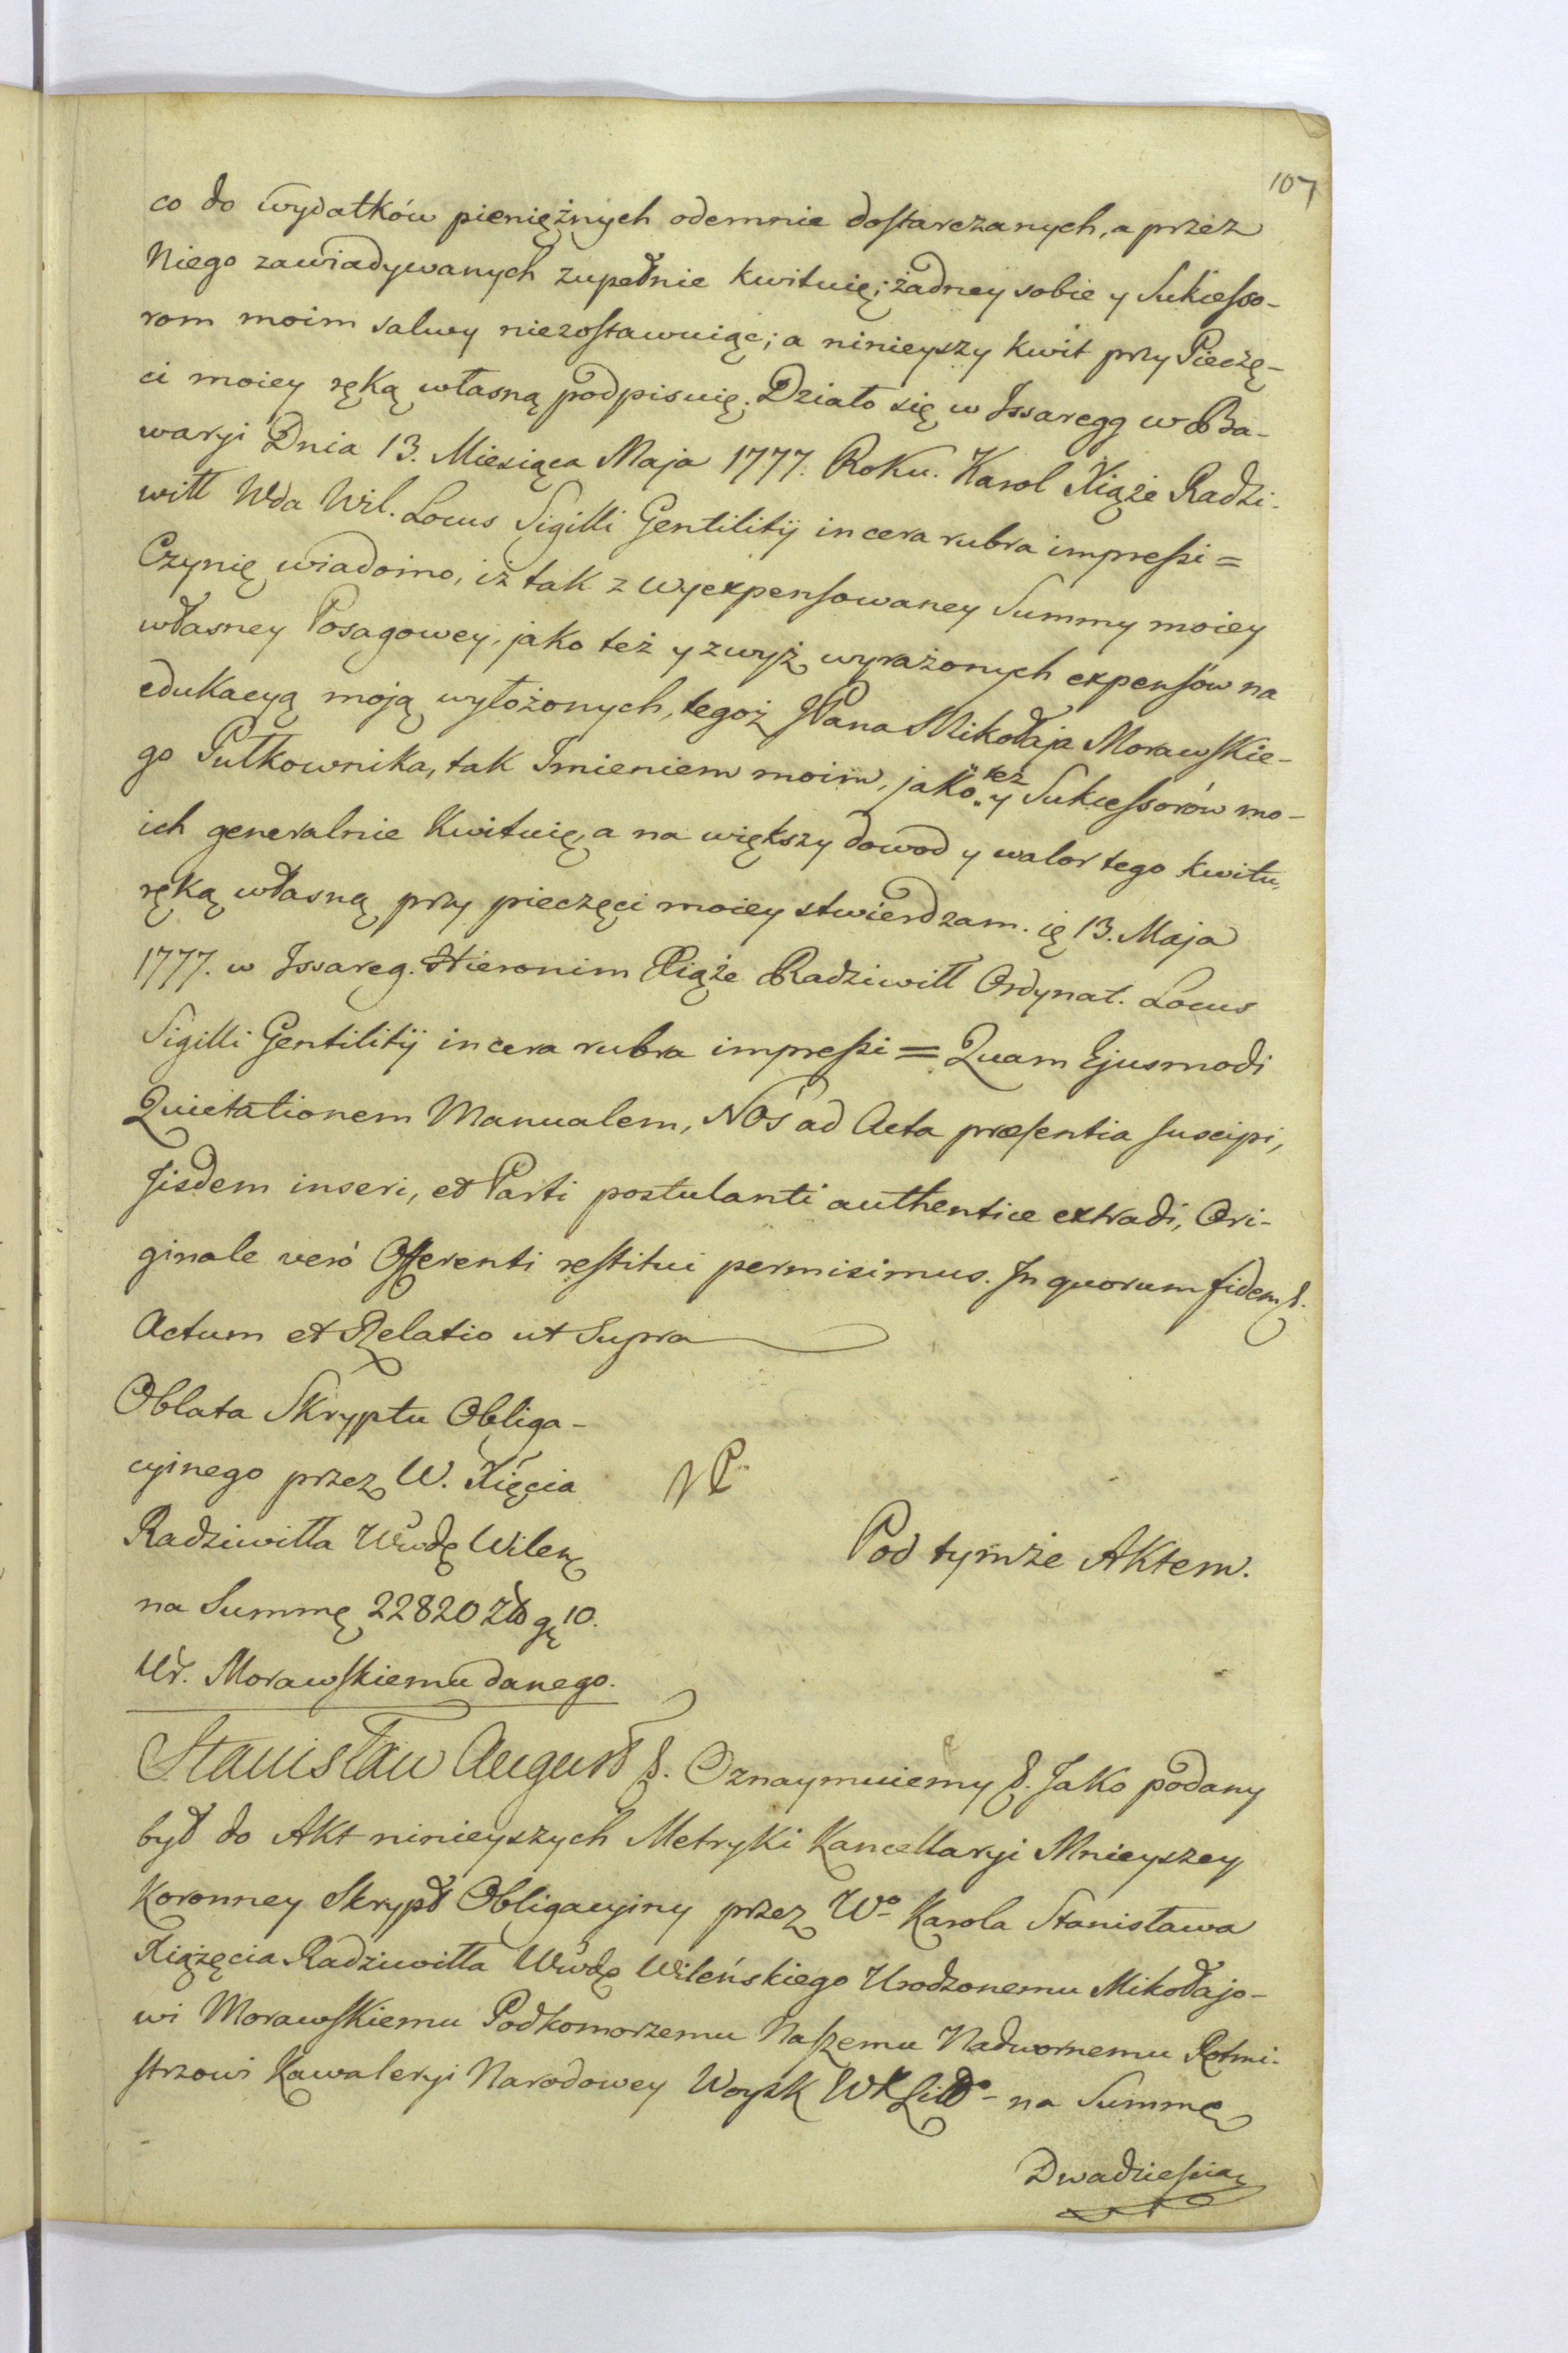 107
co do wydatków pieniężnych odemnie dostarczanych, a przez
Niego zawiadywanych zupełnie kwituię; żadney sobie y Sukcesso-
rom moim salwy niezostawuiąc; a ninieyszy kwit przy Pieczę-
ci moiey ręką własną podpisuię. Działo się w Issaregg w Ba-
waryi Dnia 13. Miesiąca Maja 1777. Roku. Karol Xiąże Radzi-
wiłł Wda Wil. Locus Sigilli Gentilitij in cera rubra impressi =
Czynię wiadomo, iż tak z wyexpensowaney Summy moiey
własney Posagowey, jako też y zwyż wyrażonych expensów na
edukacyą moją wyłożonych, tegoż JPana Mikołaja Morawskie-
go Pułkownika, tak Imieniem moim, jako też y Sukcessorów mo-
ich generalnie Kwituię, a na większy dowod y walor tego kwitu,
ręką własną przy pieczęci moiey stwierdzam. ię 13. Maja
1777. w Issareg. Hieronim Xiąże Radziwiłł Ordynat. Locus
Sigilli Gentilitij in cera rubra impressi = Quam Ejusmodi
Quietationem Manualem, NOS ad Acta præsentia suscipi,
Jisdem inseri, et Parti postulanti authentice extradi, Ori-
ginale verò Offerenti restitui permisimus. In quorum fidem &.
Actum et Relatio ut Supra
Oblata Skryptu Obliga-
cyinego przez W. Xięcia
Radziwiłła Wwdę Wileń
na Summę 22820 Zł gr 10.
Ur. Morawskiemu danego.
Pod tymże Aktem.
Stanisław August &. Oznaymuiemy &. Jako podany
był do Akt ninieyszych Metryki Kancellaryi Mnieyszey
Koronney Skrypt Obligacyiny przez Wo Karola Stanisława
Xiążęcia Radziwiłła Wwdę Wileńskiego Urodzonemu Mikołajo-
wi Morawskiemu Podkomorzemu Naszemu Nadwornemu Rotmi-
strzowi Kawaleryi Narodowey Woysk WXLitt - na Summę
Dwadzieścia